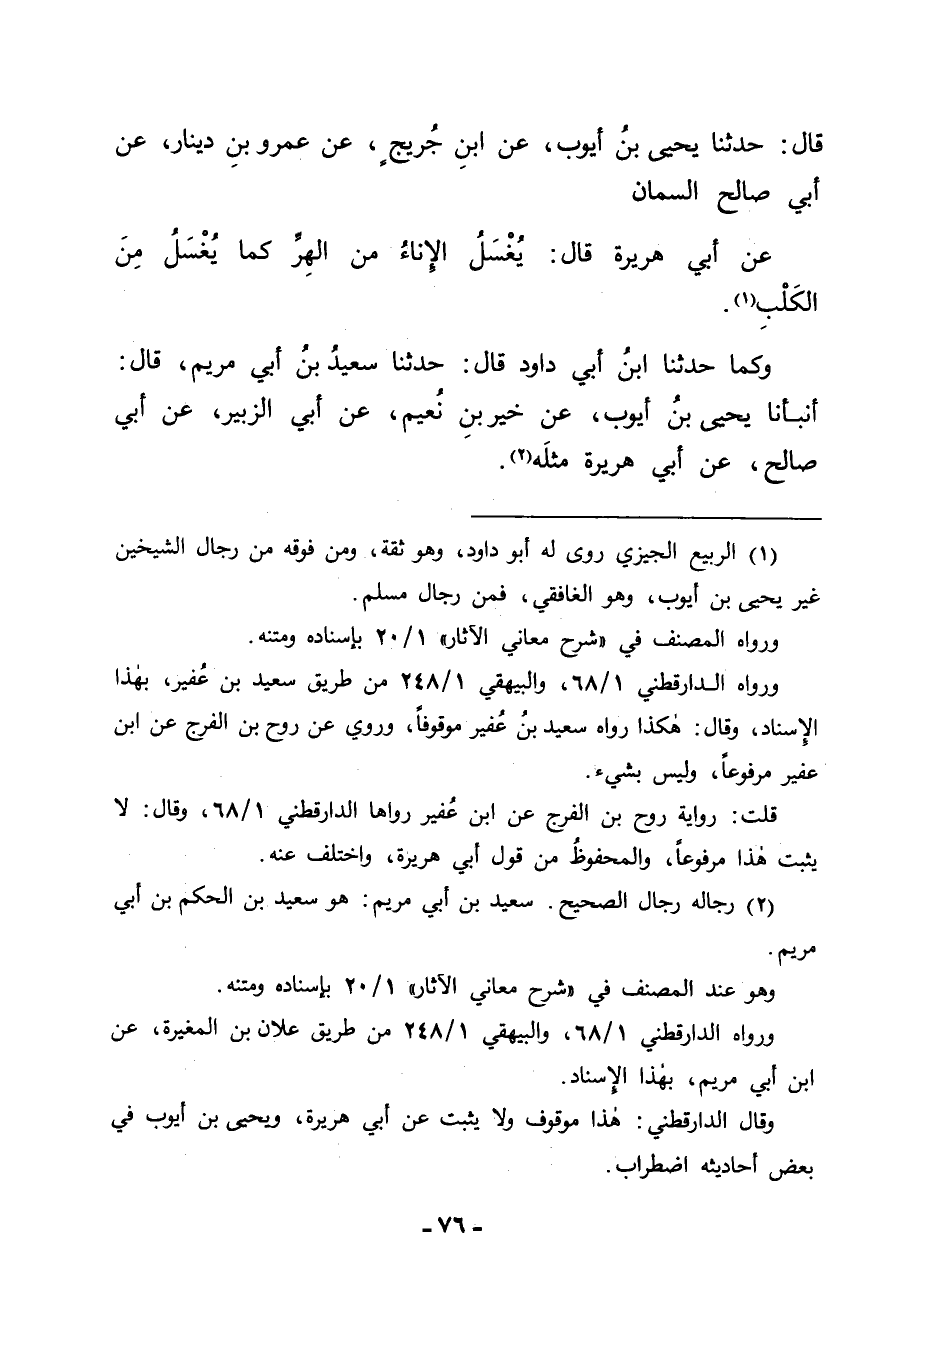 قال: حدثنا يحيى بنُ أيوب، عن ابنِ جُريجٍ، عن عمرو بنِ دينار، عن
أبي صالح السمان
عن أبي هريرة قال: يُغْسَلُ الإِناءُ من الهِرِّ كما يُغْسَلُ مِنَ
الكَلْبِ(١).
وكما حدثنا ابنُ أبي داود قال: حدثنا سعيدُ بنُ أبي مريم، قال:
أنبأنا يحيى بنُ أيوب، عن خير بنِ نُعيم، عن أبي الزبير، عن أبي
صالح، عن أبي هريرة مثلَه(٢).
(١) الربيع الجيزي روى له أبو داود، وهو ثقة، ومن فوقه من رجال الشيخين
غير يحيى بن أيوب، وهو الغافقي، فمن رجال مسلم.
ورواه المصنف في «شرح معاني الآثار» ٢٠/١ بإسناده ومتنه.
ورواه الدارقطني ٦٨/١، والبيهقي ٢٤٨/١ من طريق سعيد بن عُفير، بهٰذا
الإِسناد، وقال: هٰكذا رواه سعيد بنُ عُفير موقوفاً، وروي عن روح بن الفرج عن ابن
عفير مرفوعاً، وليس بشيء.
قلت: رواية روح بن الفرج عن ابن عُفير رواها الدارقطني ٦٨/١، وقال: لا
يثبت هٰذا مرفوعاً، والمحفوظُ من قول أبي هريرة، واختلف عنه.
(٢) رجاله رجال الصحيح. سعيد بن أبي مريم: هو سعيد بن الحكم بن أبي
مريم.
وهو عند المصنف في «شرح معاني الآثار» ٢٠/١ بإسناده ومتنه.
ورواه الدارقطني ٦٨/١، والبيهقي ٢٤٨/١ من طريق علان بن المغيرة، عن
ابن أبي مريم، بهٰذا الإِسناد.
وقال الدارقطني: هٰذا موقوف ولا يثبت عن أبي هريرة، ويحيى بن أيوب في
بعض أحاديثه اضطراب.
- ٧٦ -